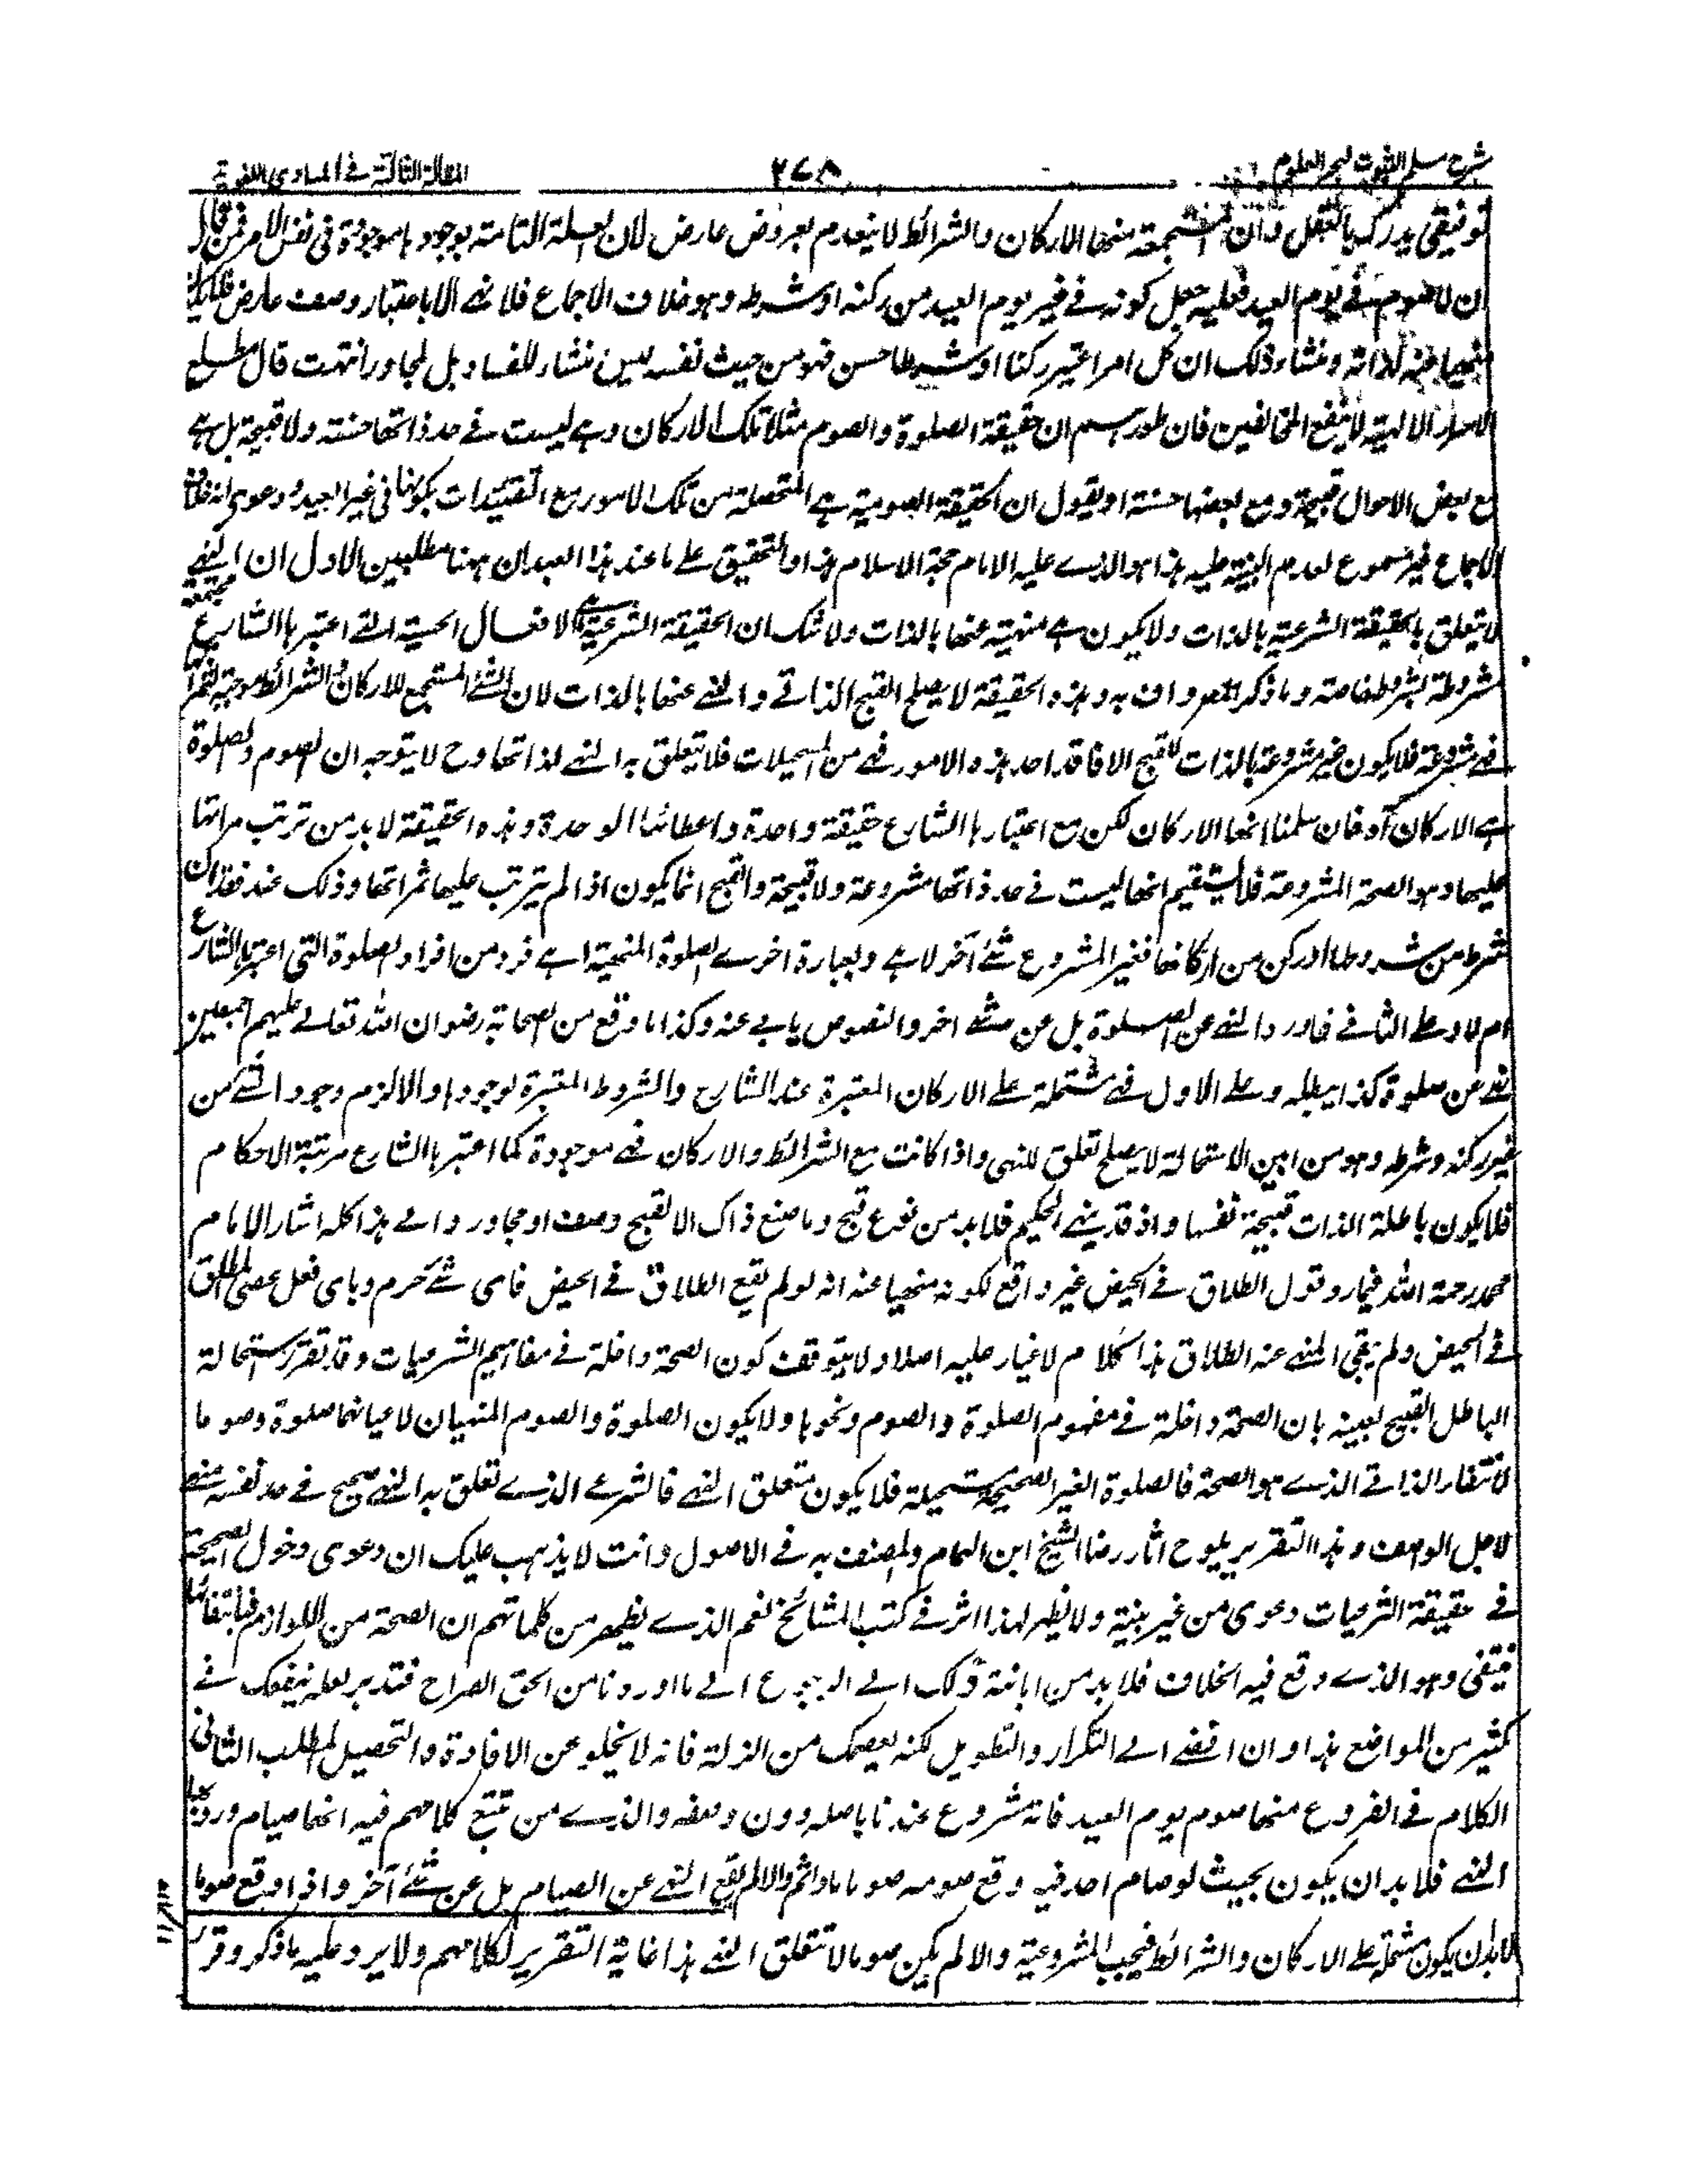 شرح سلم الثبوت لبحر العلوم
٢٧٨
المقالة الثالثة في المبادي اللغوية
توفيقي يدرك بالنقل وان المستجمعة منها الاركان والشرائط لا ينعدم بعروض عارض لان العلة التامة بوجودها موجودة في نفس الامر فمن قال
ان لا صوم في يوم العيد فعليه جعل كونه في غير يوم العيد من ركنه او شرطه وهو خلاف الاجماع فلا نهي الا باعتبار وصف عارض فلا يكون
منهيا عنه لذاته ومنشاء ذلك ان كل امر اعتبر ركنا او شرطا حسن فهو من حيث نفسه ليس منشاء للفساد بل لمجاور انتهت قال مطلع
الاسرار الالهية لا ينفع المخالفين فان طورهم ان حقيقة الصلوة والصوم مثلا تلك الاركان وهي ليست في حد ذاتها حسنة ولا قبيحة بل هي
مع بعض الاحوال قبيحة ومع بعضها حسنة او يقول ان الحقيقة الصومية هي المتحصلة من تلك الامور مع التقييدات بكونها في غير العيد ودعوى انه خلاف
الاجماع غير مسموع لعدم البينة عليه هذا هو الذي عليه الامام حجة الاسلام هذا والتحقيق على ما عند هذا العبد ان ههنا مطلبين الاول ان النهي
لا يتعلق بالحقيقة الشرعية بالذات ولا يكون هي منهية عنها بالذات ولا شك ان الحقيقة الشرعية هي الافعال الحسية التي اعتبرها الشارع
مشروطة بشروط خاصة وما ذكر المعروف به وهذه الحقيقة لا يصلح القبح الذاتي والنهي عنها بالذات لان الشئ المستجمع للاركان والشرائط موجبة
فهي مشروعة فلا يكون غير مشروعة بالذات للقبح الا فاقد احد هذه الامور فهي من المستحيلات فلا يتعلق به النهي لذاتها وح لا يتوجه ان الصوم والصلوة
هي الاركان آه فان سلمنا انها الاركان لكن مع اعتبارها الشارع حقيقة واحدة واعطائها الوحدة وهذه الحقيقة لا بد من ترتب مراتبها
عليها وهو الصحة المشروعة فلا يستقيم انها ليست في حد ذاتها مشروعة ولا قبيحة والقبح انما يكون اذا لم يترتب عليها ثمراتها وذلك عند فقدان
شرط من شروطها او ركن من اركانها فغير المشروع شئ آخر لا هي وبعبارة اخرى الصلوة المنهية اهي فرد من افراد الصلوة التي اعتبرها الشارع
ام لا وعلى الثاني فما ورد النهي عن الصلوة بل عن شئ اخر والنصوص يابى عنه وكذا ما وقع من الصحابة رضوان الله تعالى عليهم اجمعين
نهي عن صلوة كذا يبطله وعلى الاول فهي مشتملة على الاركان المعتبرة عند الشارع والشروط المعتبرة لوجودها والا لزم وجود الشئ من
غير ركنه وشرطه وهو من ابين الاستحالة لا يصلح تعلق للنهي واذا كانت مع الشرائط والاركان فهي موجودة كما اعتبرها الشارع مرتبة الاحكام
فلا يكون باعلة الذات قبيحة نفسها واذ قد نهى الحكيم فلا بد من نوع قبح وما صنع ذاك الا لقبح وصف او مجاور والى هذا كله اشار الامام
محمد رحمة الله فيما ردّ قول الطلاق في الحيض غير واقع لكونه منهيا عنه انه لو لم يقع الطلاق في الحيض فاى شئ حرم وباى فعل عصى المطلق
في الحيض ولم يبقى المنهي عنه الطلاق هذا كلام لا غبار عليه اصلا ولا يتوقف كون الصحة داخلة في مفاهيم الشرعيات وقد تقرر استحالة
الباطل القبيح لعينه بان الصحة داخلة في مفهوم الصلوة والصوم ونحوها ولا يكون الصلوة والصوم المنهيان لاعيانهما صلوة وصوما
لانتفاء الذاتي الذي هو الصحة فالصلوة الغير الصحيحة مستحيلة فلا يكون متعلق النهي فالشرعي الذي تعلق به النهي صحيح في حد نفسه منهي
لاجل الوصف وبهذا التقرير يلوح اثار رضا الشيخ ابن الهمام والمصنف به في الاصول وانت لا يذهب عليك ان دعوى دخول الصحة
في حقيقة الشرعيات دعوى من غير بينة ولا يظهر لهذا اثر في كتب المشائخ نعم الذي يظهر من كلماتهم ان الصحة من اللوازم فبانتفائها
ينتفي وهو الذي وقع فيه الخلاف فلا بد من ابانة ذلك الى الرجوع الى ما اوردنا من الحق الصراح فتدبر لعله ينفعك في
كثير من المواضع هذا وان افضى الى التكرار والتطويل لكنه يعصمك من الزلة فانه لا يخلو عن الافادة والتحصيل المطلب الثاني
الكلام في الفروع منها صوم يوم العيد فانه مشروع عندنا باصله دون وصفه والذي من تتبع كلامهم فيه انها صيام ورد بها
النهي فلا بد ان يكون بحيث لو صام احد فيه وقع صومه صوما ما واثم والا لم يقع النهي عن الصيام بل عن شئ آخر واذا وقع صوما
لا بد ان يكون مشتملة على الاركان والشرائط فيجب المشروعية والا لم يكن صوما لا تتعلق النهي هذا غاية التقرير لكلامهم ولا يرد عليه ما ذكر وقر